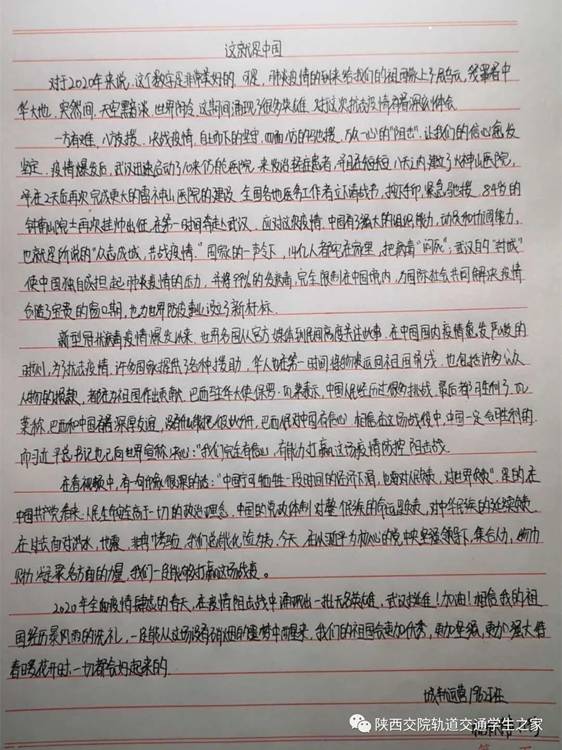 这就是中国
对于2020年来说,这个数字是非常美好的,可是,带来疫情的到来给我们的祖国蒙上了层乌云,笼罩着中
华大地,突然间,天空黑暗,世界闭冷,这期间涌现了很多英雄,对这次抗击疫情有着深刻体会
一方有难,八方支援,决战疫情,自上而下的坚守,四面八方的驰援,万众一心的"阻击",让我们的信心愈发
坚定,疫情爆发后,武汉迅速启动了10来个方舱医院,来收治轻症患者,并且在短短八天内建了火神山医院,
并在2天后再次完成更大的雷神山医院的建设,全国各地医务工作者立下请战书,按下手印,紧急驰援,84岁的
钟南山院士再次挂帅出征,在第一时间奔赴武汉,应对这次疫情,中国有了强大的组织能力,动员和协调能力,
也就是所说的"众志成城,共战疫情,"国家的一声令下,14亿人都宅在家里,把病毒"闷死";武汉的"封城"
使中国独自承担起带来疫情的压力,并将99%的患病者,完全限制在中国境内,为国际社会共同解决疫情
创造了宝贵的窗口期,也为世界防疫事业设立了新标杆.
新型冠状病毒疫情爆发以来,世界各国从官方媒体到民间高度关注此事,在中国国内疫情愈发严峻的
时刻,为了抗击疫情,许多国家提供了各种援助,华人也在第一时间将物资运回祖国前线,也包括许多公众
人物的捐款,都在为祖国作出贡献,巴西驻华大使保罗·瓦莱表示,中国人民经历过很多挑战,最后都习胜利了,瓦
莱称,巴西和中国有着深厚友谊
而习近平总书记也已向世界宣称决心:"我们完全有信心,有能力打赢这场疫情防控阻击战
在看视频中,有一句印象很深的话:"中国宁可牺牲一段时间的经济下滑,也要对人民负责,对世界负责",是的,在
中国共产党看来,人民生命是高于一切的政治理念,中国的党政体制对整个民族的命运负责,对中华民族的延续负责
在过去面对洪水,地震,非典考验,我们总能化险为夷,今天,在以习近平为核心的党中央坚强领导下,集合人力,物力
财力等各方面的力量,我们一定能够打赢这场战疫。
2020年全面疫情肆虐的春天,在疫情阻击战中涌现出一批无名英雄,武汉挺住!加油!相信我的祖
国经历暴风雨的洗礼,一定能从这场没有硝烟的噩梦中闯过来,我们的祖国会更加优秀,更加坚强,更加强大,待
春暖花开时,一切都会好起来的.
城轨运营
陕西交院轨道交通学生之家